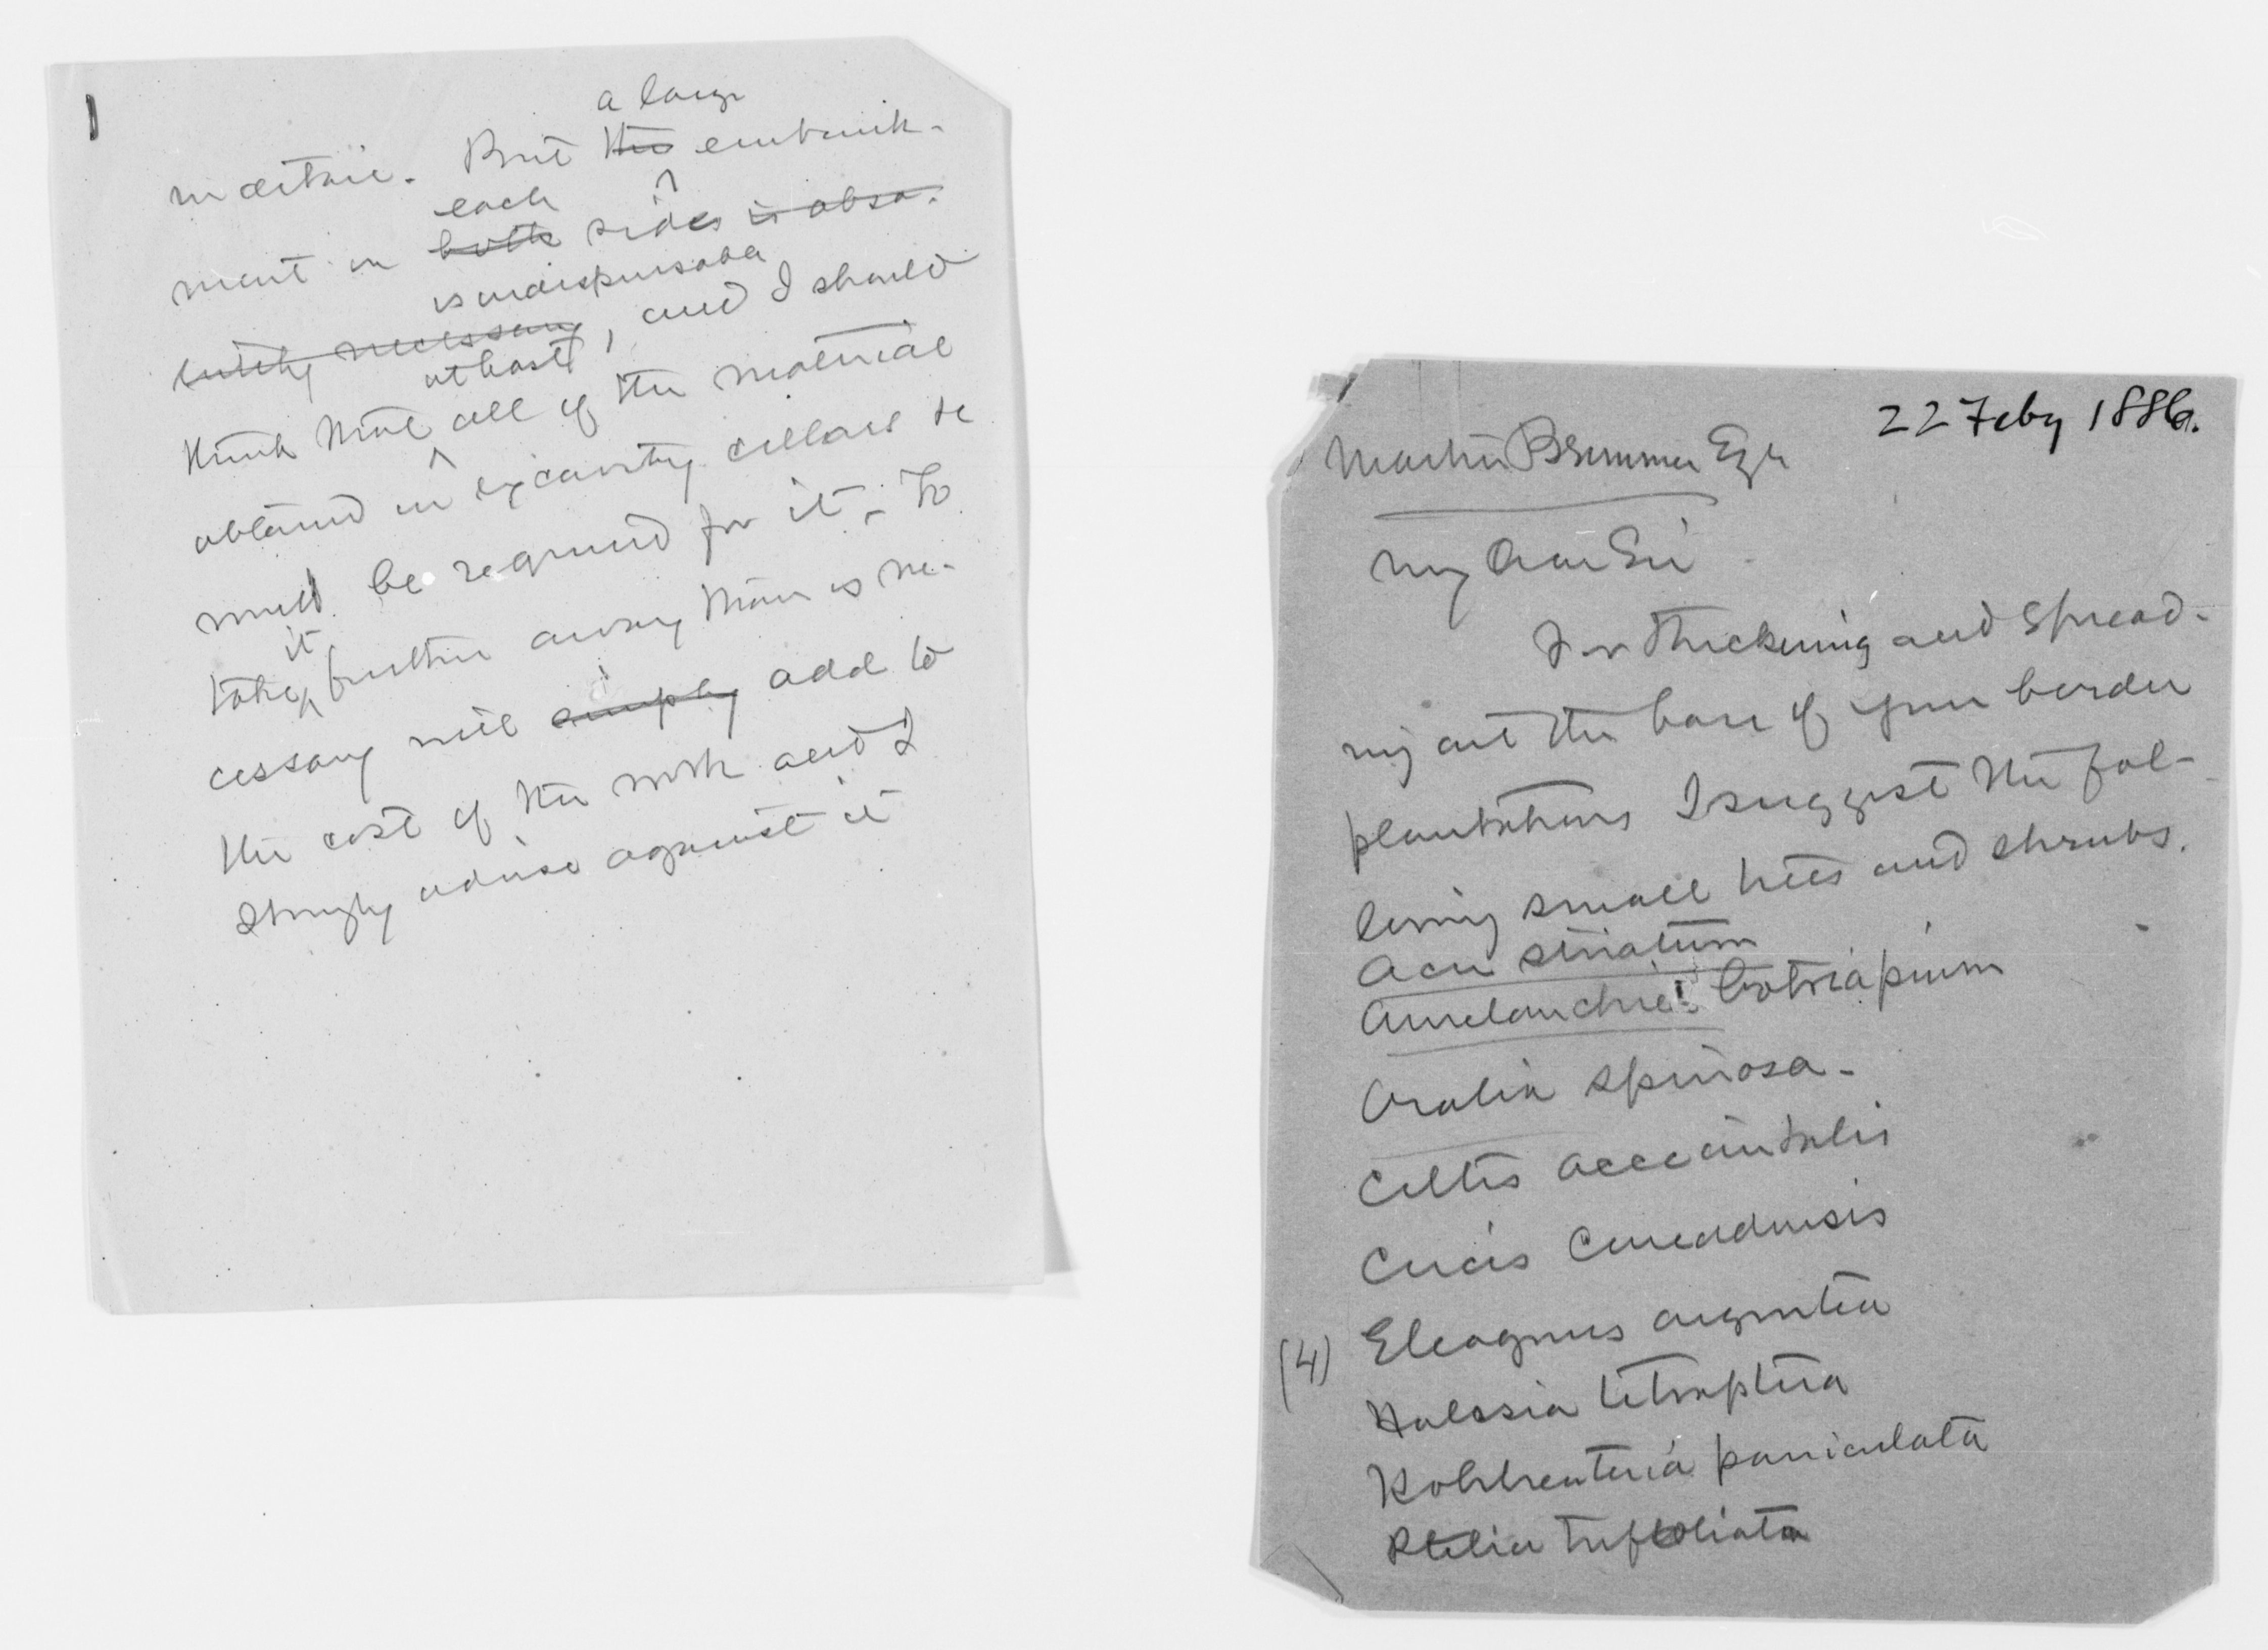 a large
maitre. But the embank-
each
ment on both sides is abso-
is indispensable
lutely necessary, and I should
at least
think that all of the material
obtained in excavating cellars &c
will be required for it. To
it
take further away than is ne-
cessary will simply add to
the cost of the work and I
strongly advise against it
22 Feby 1886.
Martin Brimmer Esqr
My dear Sir
For thickening and spread-
ing out the base of your border
plantations I suggest the fol-
lowing small trees and shrubs.
Acer striatum
Amelanchier botriapium
Aralia spinosa.
Celtis occcidentalis
Cercis Canaddensis
(4) Eleagnus argentea
Halesia tetraptera
Kohlreuteria paniculata
Ptelia trifoliata